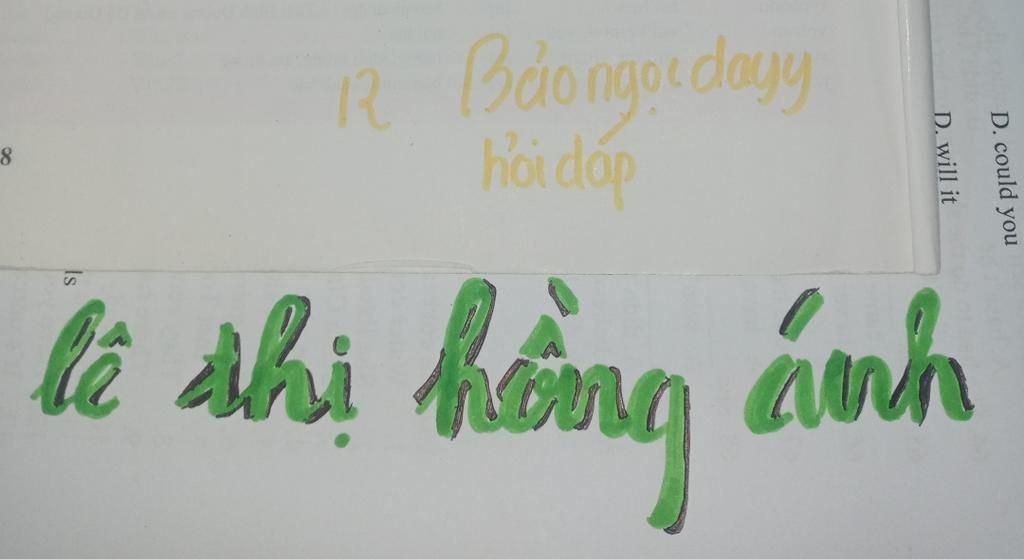 12 Bảo ngọc dayy
hỏi dáp
8
D. will it
D. could you
ls
lê thị hồng ánh